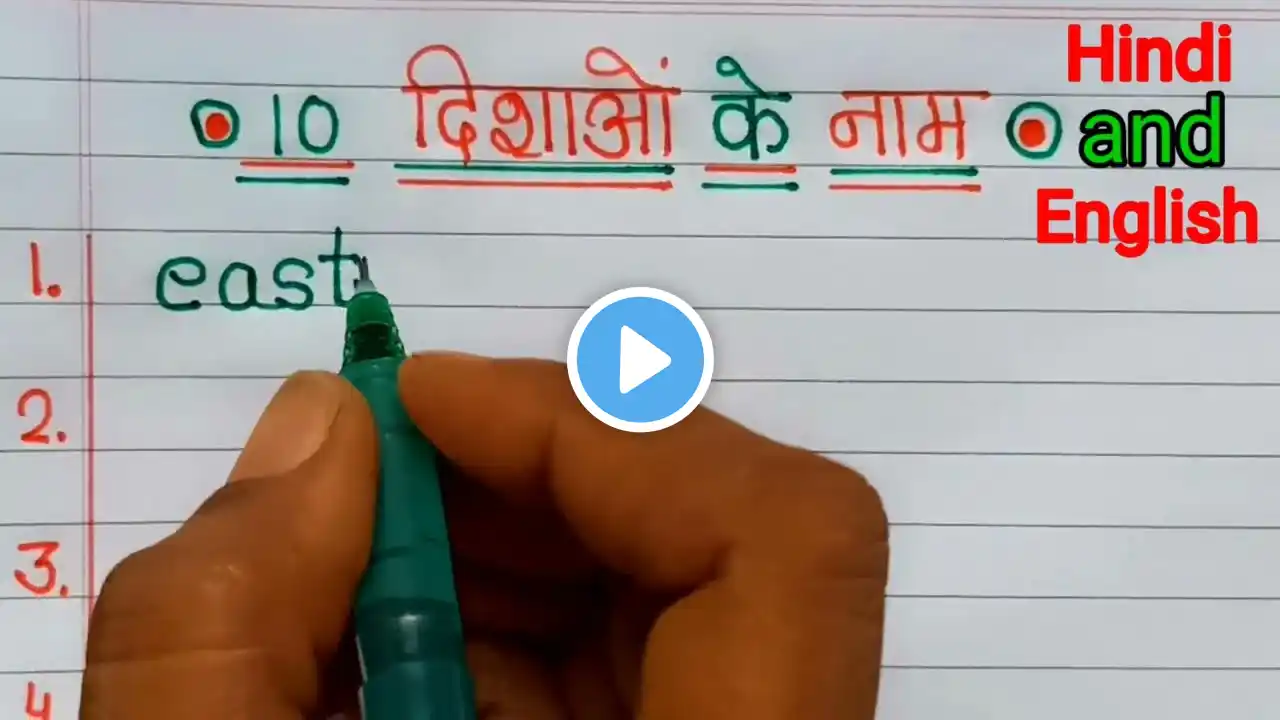 10 दिशाओं के नाम
Hindi
and
English
1. east
2.
3.
4